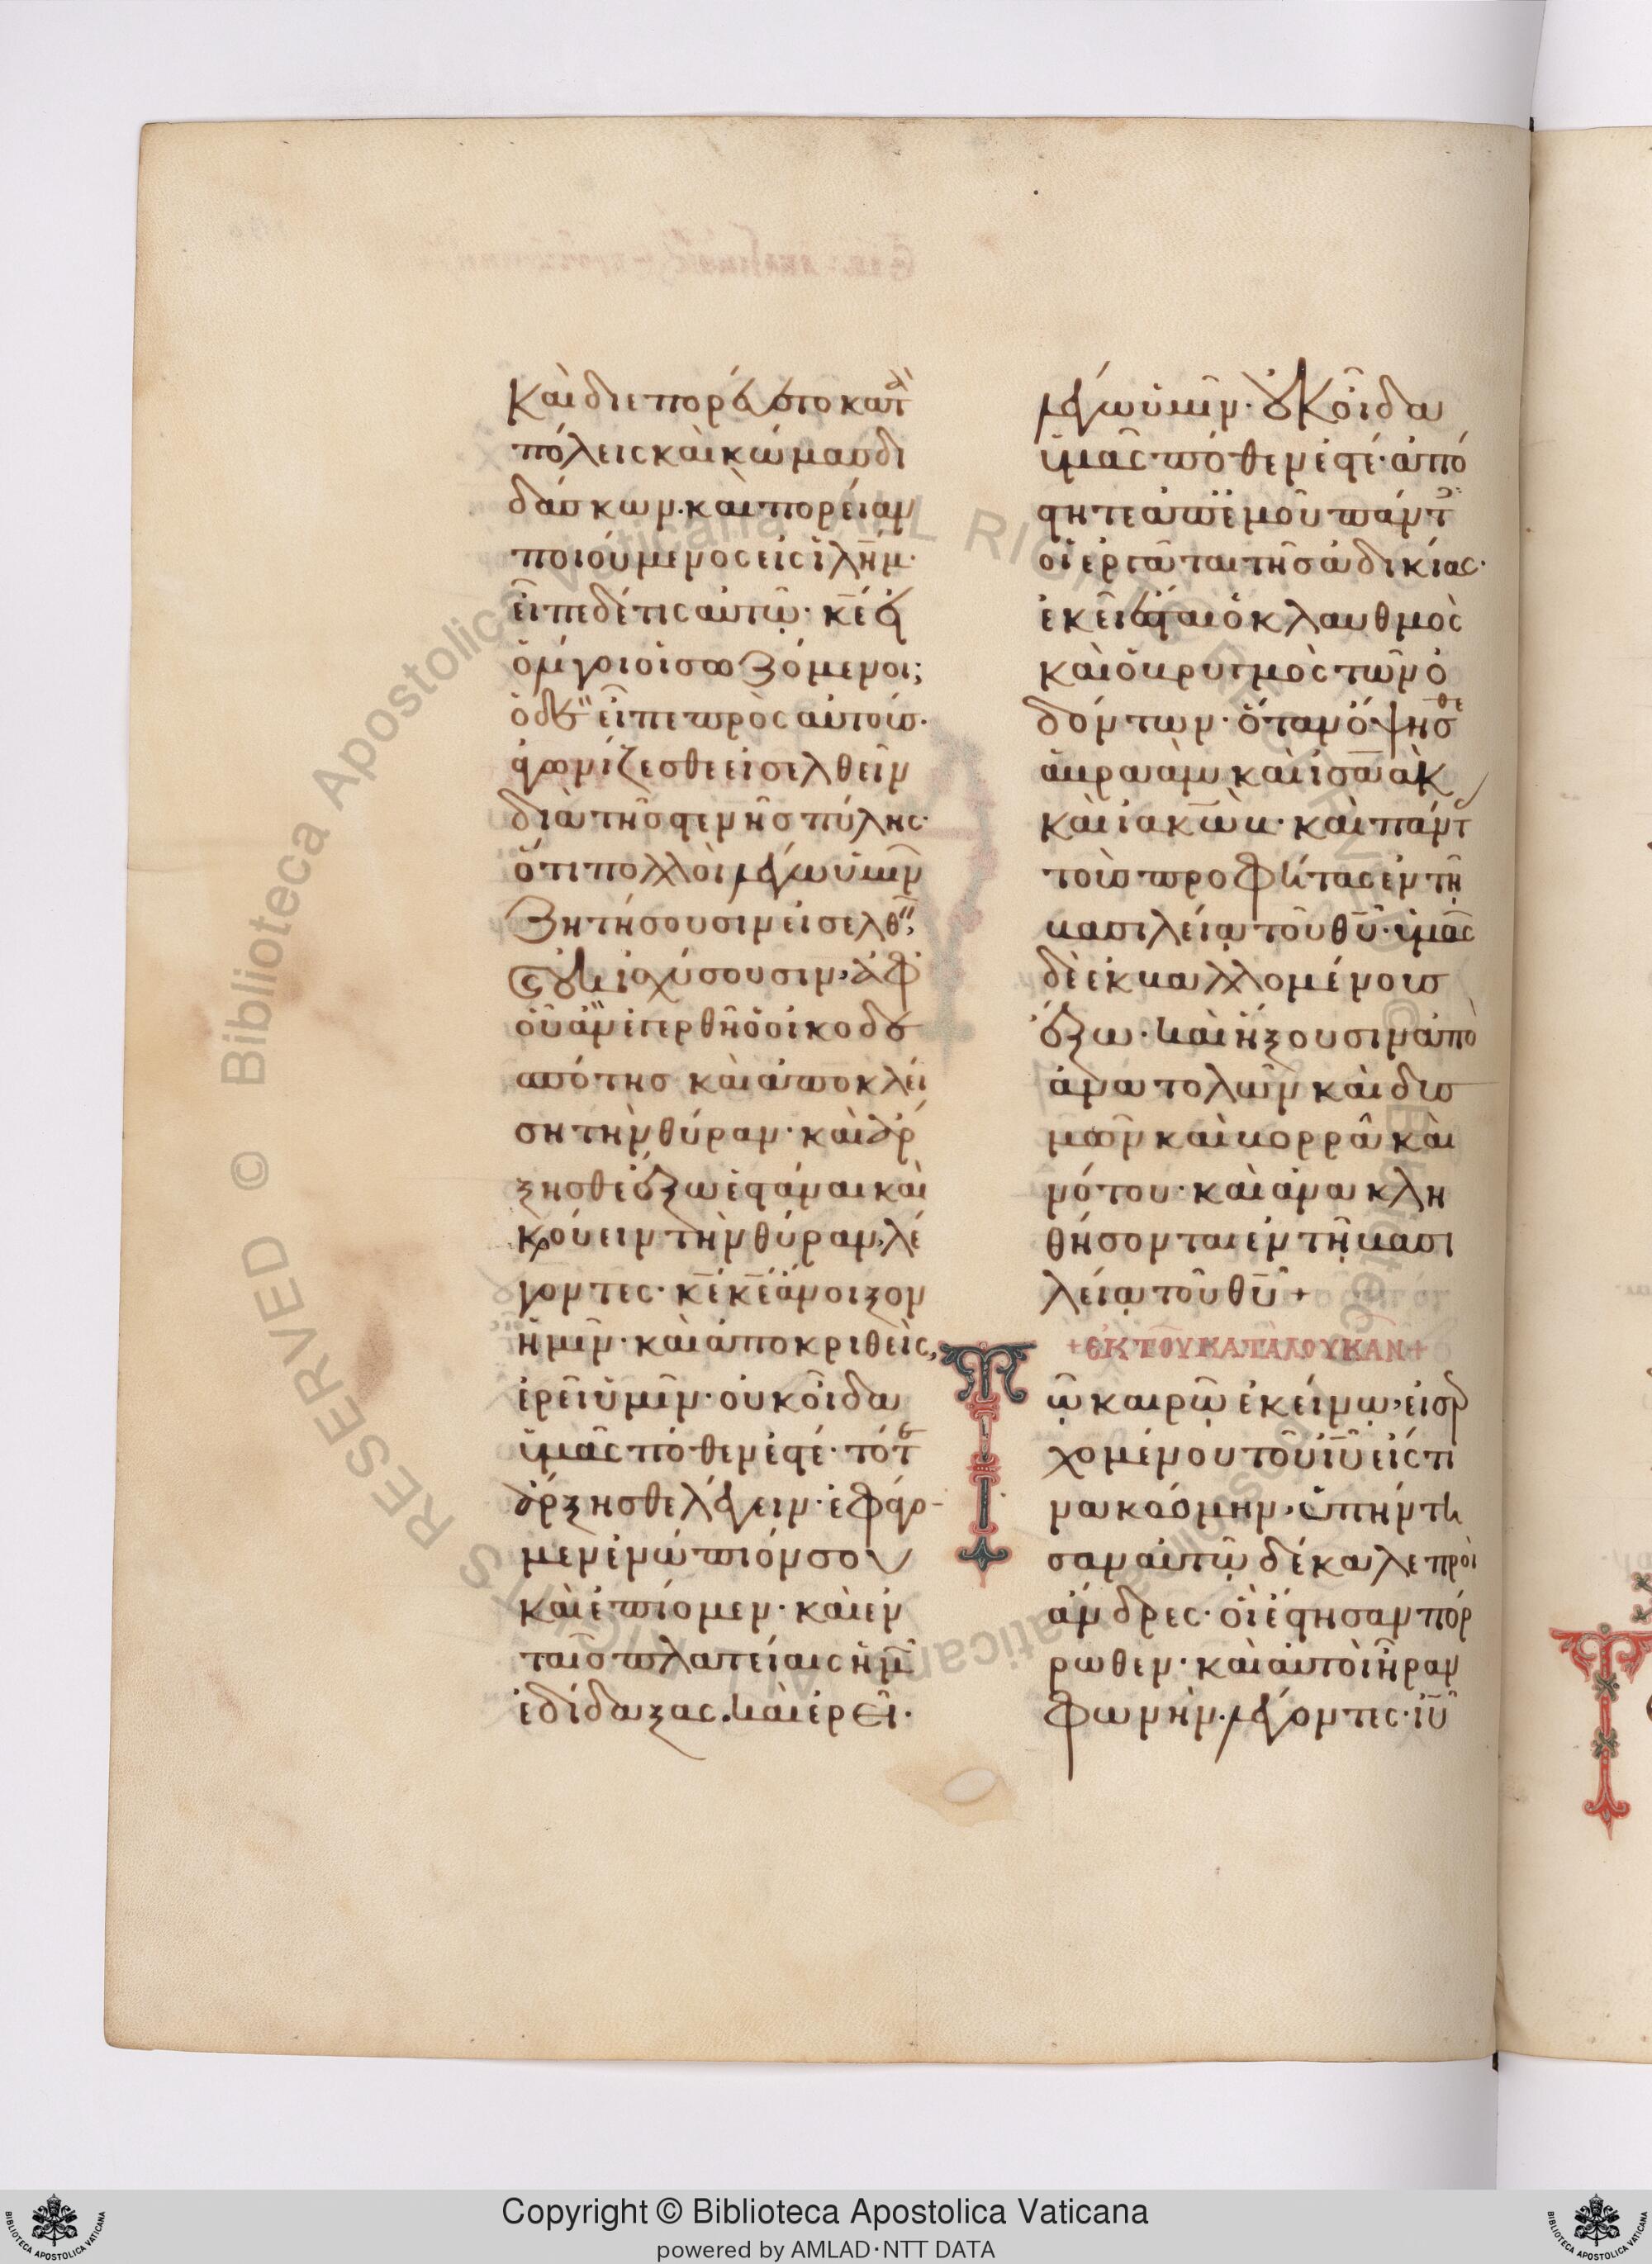 Καὶ διεπορεύετο κατὰ
πόλεις καὶ κώμας δι
δάσκων· καὶ πορείαν
ποιούμενος εἰς ἰλη̅μ·
εἶπε δέ τις αὐτῷ· κ̅ε εἰ
ὀλίγοι οἱ σωζόμενοι;
ὁ δὲ εἶπε πρὸς αὐτούς·
ἀγωνίζεσθε εἰσελθεῖν
διὰ τῆς στενῆς πύλης·
ὅτι πολλοὶ λέγω ὑμῖν
ζητήσουσιν εἰσελθεῖν,
καὶ οὐκ ἰσχύσουσιν, ἀφ
οὗ ἂν ἐγερθῆ ὁ οἰκοδε
σπότης καὶ ἀποκλεί
ση τὴν θύραν· καὶ ἄρ
ξησθε ἔξω ἑστάναι καὶ
κρούειν τὴν θύραν, λέ
γοντες· κ̅ε κ̅ε ἄνοιξον
ἡμῖν· καὶ ἀποκριθεὶς,
ἐρεῖ ὑμῖν· οὐκ οἶδα
ὑμᾶς πόθεν ἐστέ· τότε
ἄρξησθε λέγειν· ἐφάγο-
μεν ἐνώπιόν σου
καὶ ἐπίομεν· καὶ ἐν
ταῖς πλατείαις ἡμῶν
ἐδίδαξας. καὶ ἐρεῖ·
λέγω ὑμῖν· οὐκ οἶδα
ὑμᾶς πόθεν ἐστέ· ἀπό
στητε ἀπ ἐμοῦ πάντες
οἱ ἐργάται τῆς ἀδικίας·
ἐκεῖ ἔσται ὁ κλαυθμὸς
καὶ ὁ βρυγμὸς τῶν ὀ
δόντων· ὅταν ὄψησθε
ἀβραὰμ καὶ ἰσαὰκ
καὶ ἰακὼβ· καὶ πάντας
τοὺς προφήτας ἐν τῆ
βασιλεία τοῦ θ̅υ· ὑμᾶς
δὲ ἐκβαλλομένους
ἔξω· καὶ ἥξουσιν ἀπὸ
ἀνατολῶν καὶ δυσ
μῶν καὶ βορρᾶ καὶ
νότου· καὶ ἀνακλη
θήσονται ἐν τῆ βασι
λεία τοῦ θ̅υ +
+ ἐκ τοῦ κατὰ λουκᾶν +
Τῷ καιρῷ ἐκείνῳ, εἰσερ
χομένου τοῦ ἰ̅υ εἴς τι
να κώμην, ὑπήντη
σαν αὐτῷ δέκα λεπροὶ
ἄνδρες· οἳ ἔστησαν πόρ
ρωθεν· καὶ αὐτοὶ ἦραν
φωνὴν· λέγοντες· ἰ̅υ
Copyright © Biblioteca Apostolica Vaticana
powered by AMLAD·NTT DATA